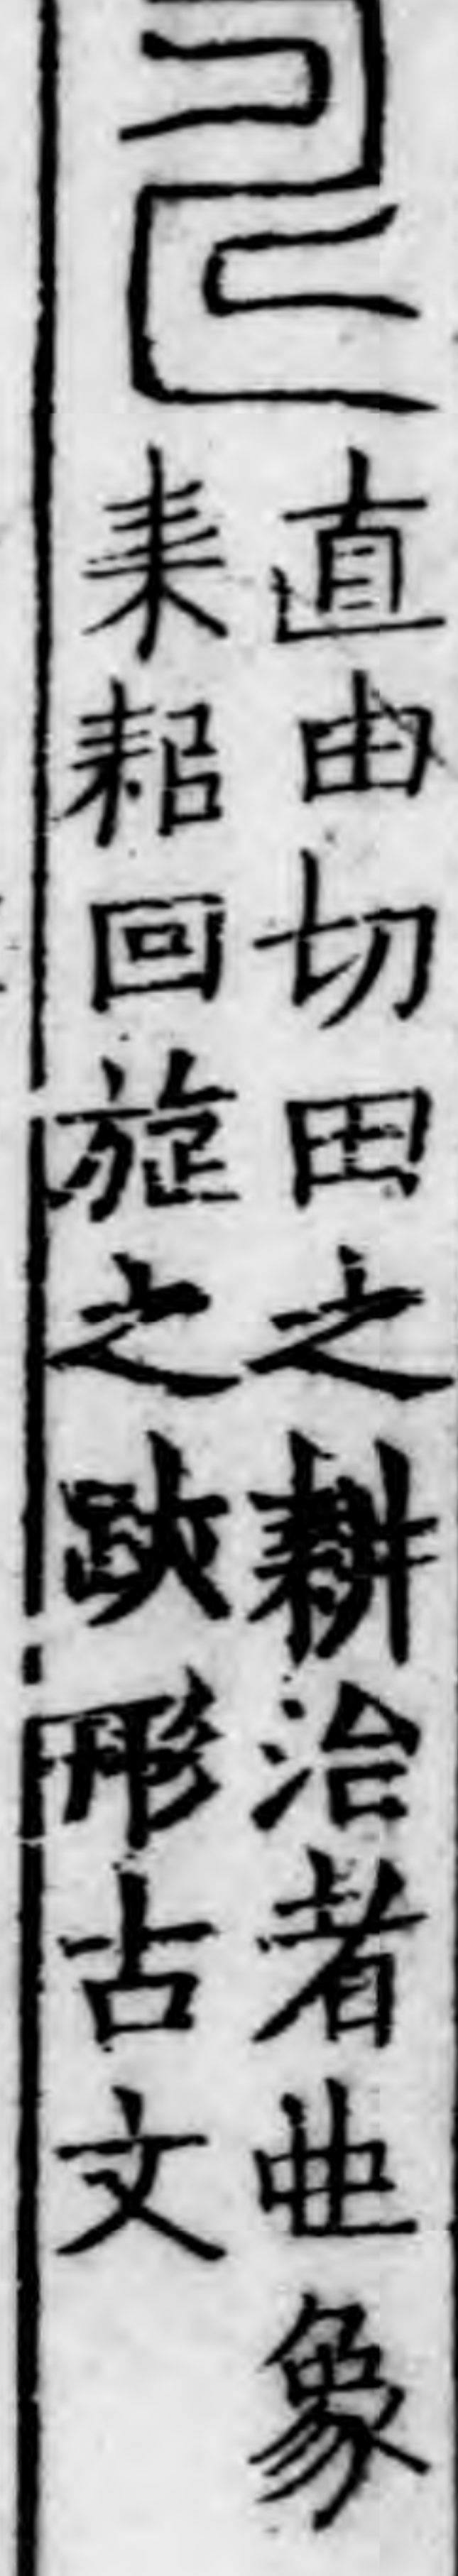 直由切田之耕治者曲象
耒耜回旋之㽛形古文